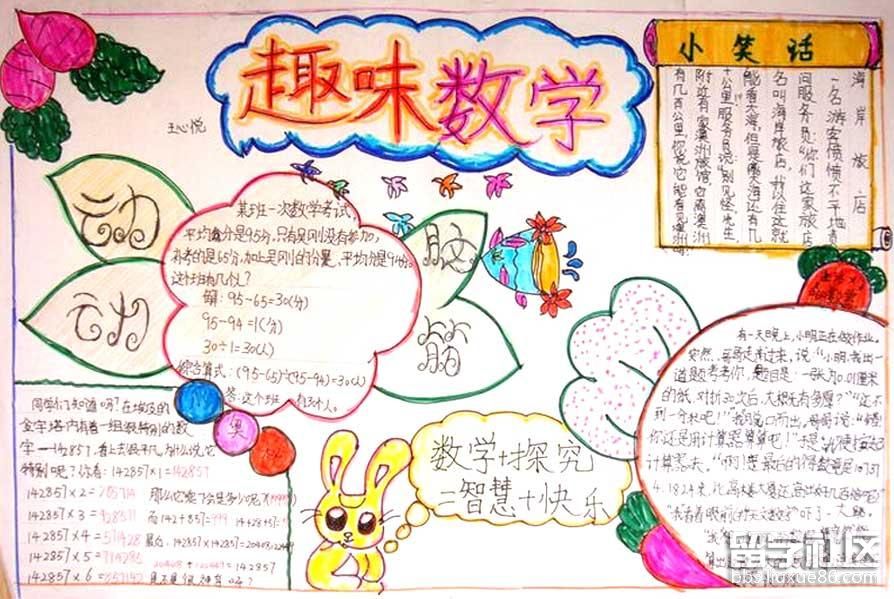 趣味数学
王心悦
小笑话
海岸旅店
一名游客愤愤不平地责
问服务员:“你们这家旅店
名叫海岸旅店,我以住这就
能看大海,但是离大海还有几
十公里!”服务员说:“别见怪,先生,
附近有家澳洲旅馆,它离澳洲
有几百公里,你说它能看见澳洲吗?
动
动
脑
筋
某班一次数学考试,
平均分是95分,只有吴刚没有参加,
补考的是65分,加上吴刚的分是,平均分是94分。
这个班有几个人?
解:95-65=30(分)
95-94=1(分)
30÷1=30(人)
综合算式:(95-65)÷(95-94)=30(人)
答:这个班一共有30个人。
奥
同学们知道吗?在埃及的
金字塔内有着一组很特别的数
字—142857,看上去很平凡,为什么说它
特别呢?你看:142857×1=142857
142857×2=285714
那么它乘7会是多少呢?(999999)
142857×3=428571
而142+857=999
142857×4=571428
最后,142857×142857=20408122449
142857×5=714285
20408+122449=142857
142857×6=857142
是不是很神奇呀?
数学+探究
=智慧+快乐
有一天晚上,小明正在做作业。
突然,哥哥走过来,说:“小明,我出一
道题考考你,题目是:一张为0.01厘米
的纸,对折30次后,大概先有多厚?”“还不
到一分米吧!”我脱口而出,哥哥说:“错
你还是用计算器算算吧!”于是,我便按起
计算器来。“啊!
留学社区
bbs.liuxue86.com